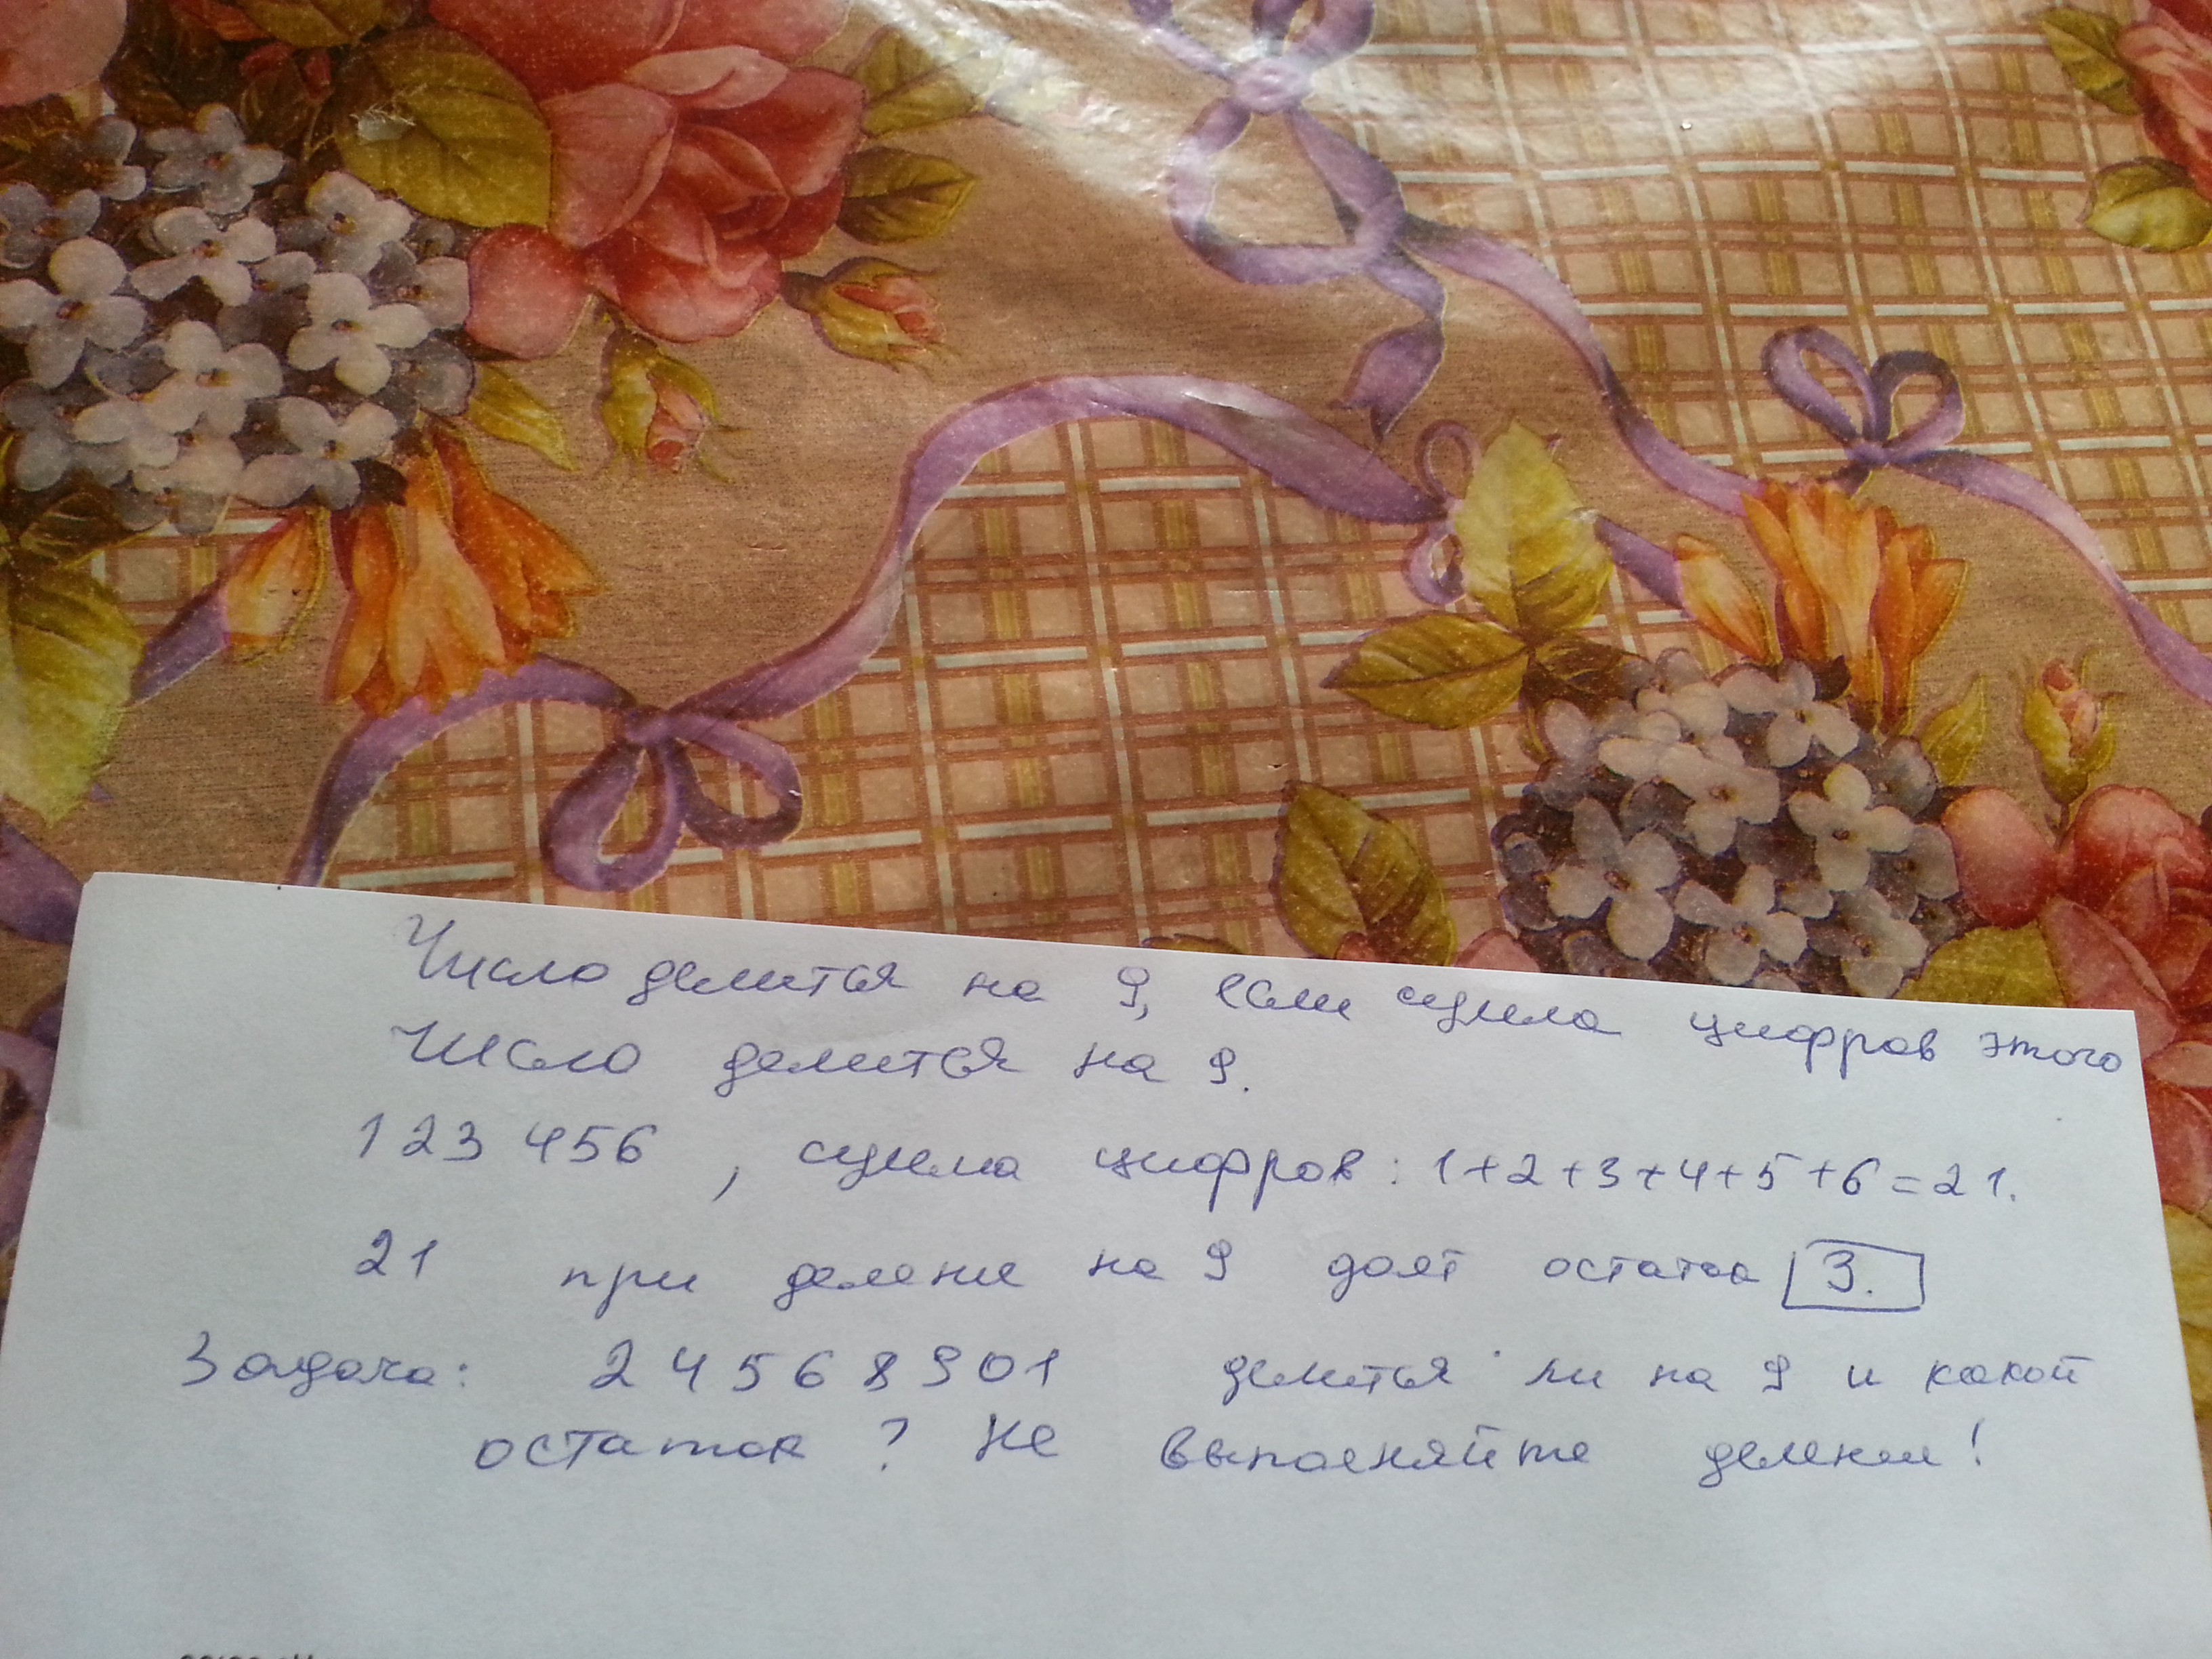 Число делится на 9, если сумма цифров этого
число делится на 9.
123 456 , сумма цифров: 1+2+3+4+5+6=21.
21 при делене на 9 дает остаток 3.
Задача: 24568901 делится ли на 9 и какой
остаток? Не выполняйте делени!